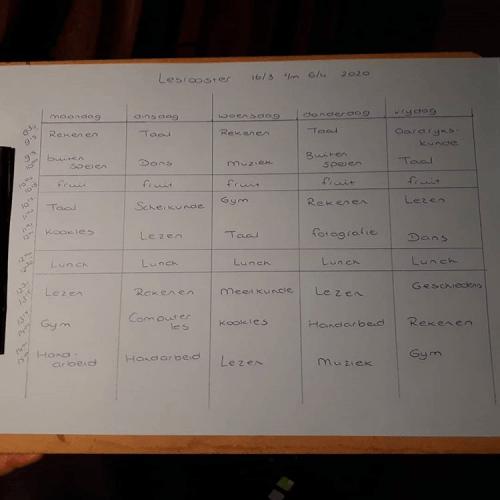 Lesrooster 16/3 t/m 6/4 2020
maandag dinsdag woensdag donderdag vrijdag
Rekenen Taal Rekenen Taal Aardrijks-
kunde
buiten spelen Dans Muziek Buiten spelen Taal
fruit fruit fruit fruit fruit
Taal Scheikunde Gym Rekenen Lezen
Kookles Lezen Taal fotografie Dans
Lunch Lunch Lunch Lunch Lunch
Lezen Rekenen Meetkunde Lezen Geschiedenis
Gym Computer les Kookles Handarbeid Rekenen
Hand-
arbeid Handarbeid Lezen Muziek Gym